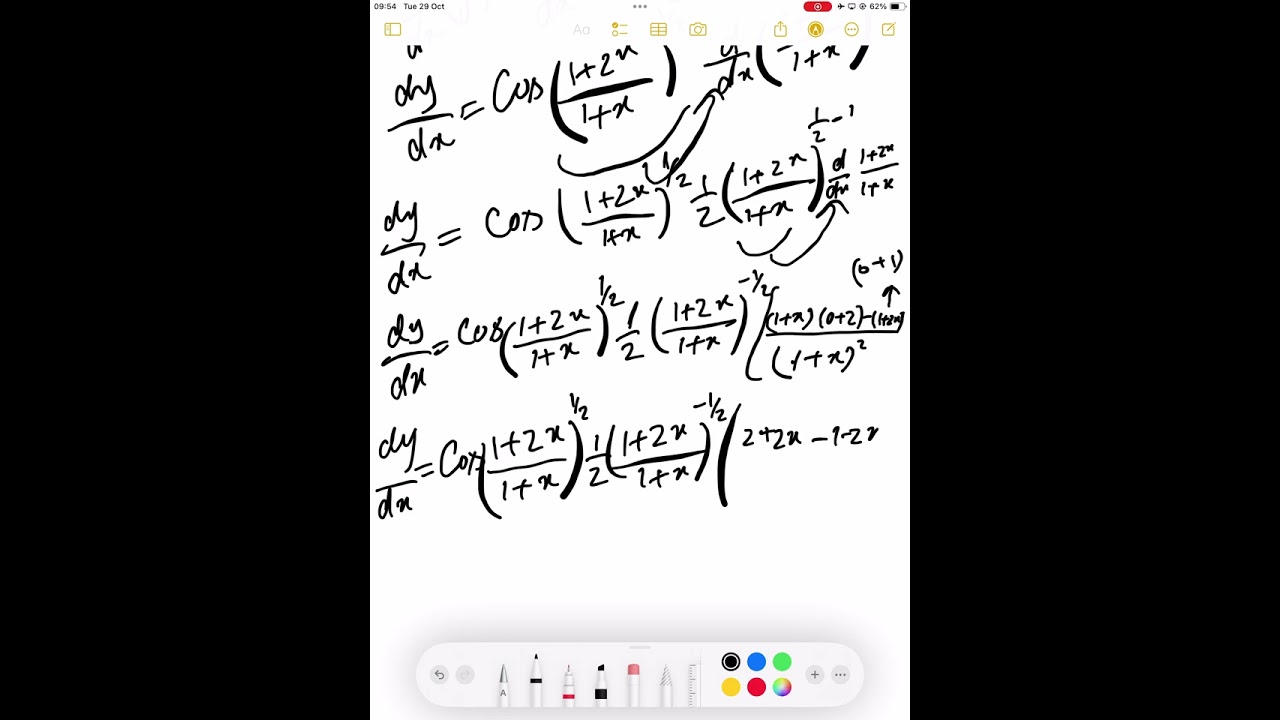 09:54 Tue 29 Oct 62%
Aa
dy/dx = Cos((1+2x)/(1+x)) d/dx( /1+x)
dy/dx = Cos((1+2x)/(1+x))^1/2 1/2 ((1+2x)/(1+x))^1/2-1 d/dx (1+2x)/(1+x)
(0+1)
dy/dx = Cos((1+2x)/(1+x))^1/2 1/2 ((1+2x)/(1+x))^-1/2 ((1+x)(0+2)-(1+2x)/(1+x)^2
dy/dx = Cos((1+2x)/(1+x))^1/2 1/2 ((1+2x)/(1+x))^-1/2 (2+2x-1-2x
A